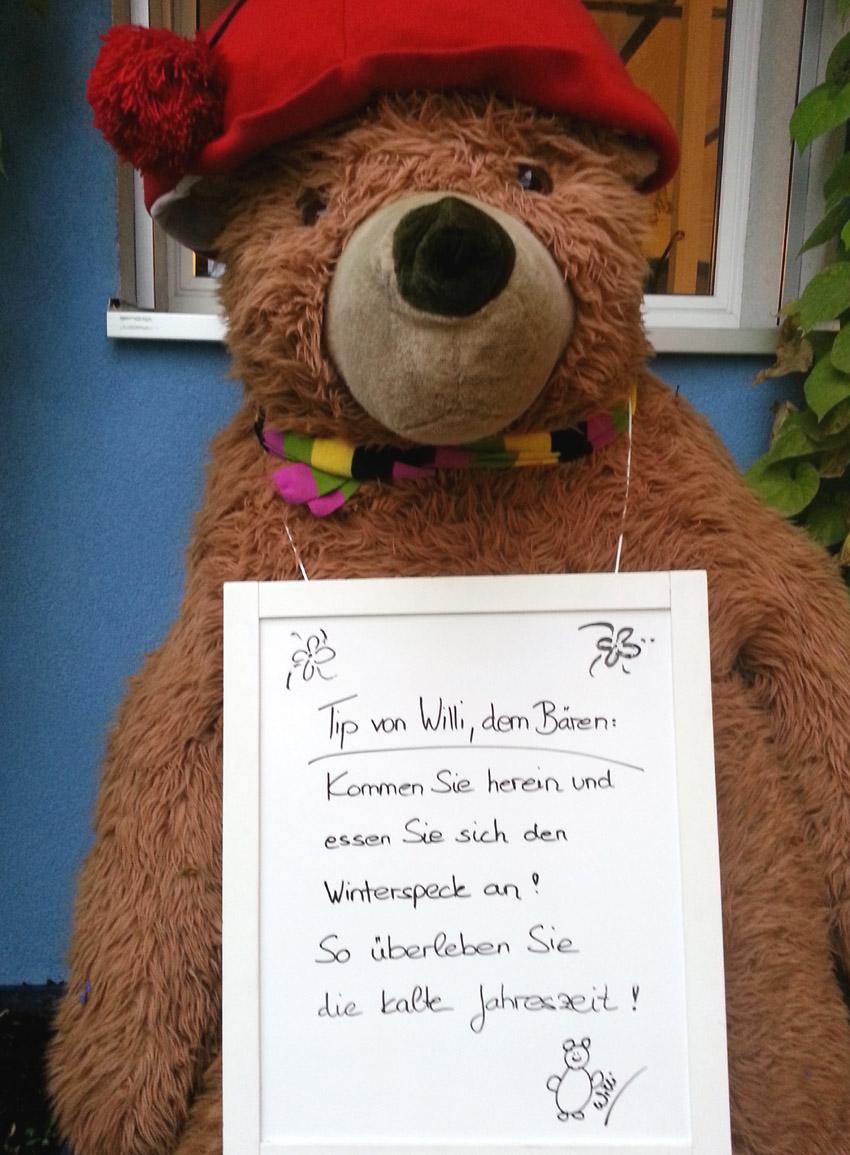 Tip von Willi, dem Bären:
Kommen Sie herein und
essen Sie sich den
Winterspeck an!
So überleben Sie
die kalte Jahreszeit!
Willi